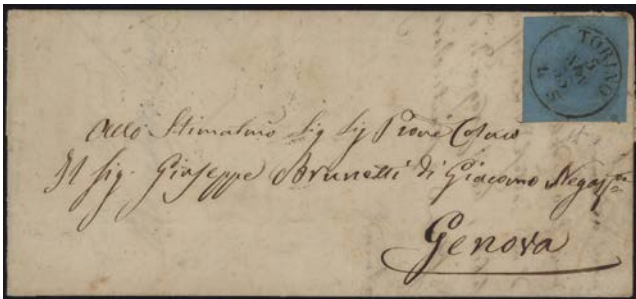 TORINO
5
NOV
Allo Stimatmo Sig Sig Prone Colmo
Il Sig. Giuseppe Brunetti di Giacomo Negozte
Genova